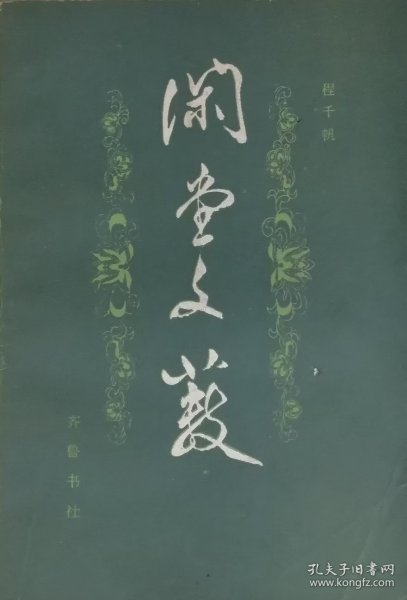 程千帆
闲堂文薮
齐鲁书社
孔夫子旧书网
www.kongfz.com